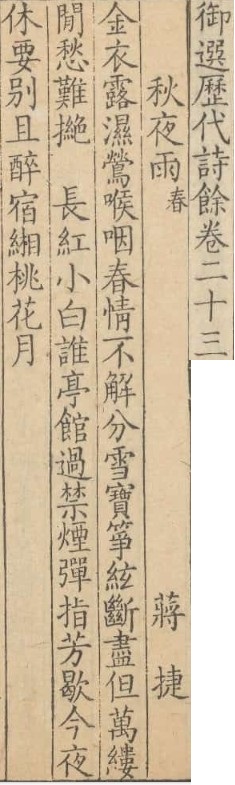 御選歷代詩餘卷二十三
秋夜雨 春 蔣捷
金衣露濕鶯喉咽春情不解分雪寶箏絃斷盡但萬縷
閒愁難撧 長紅小白誰亭館過禁煙彈指芳歇今夜
休要别且醉宿緗桃花月